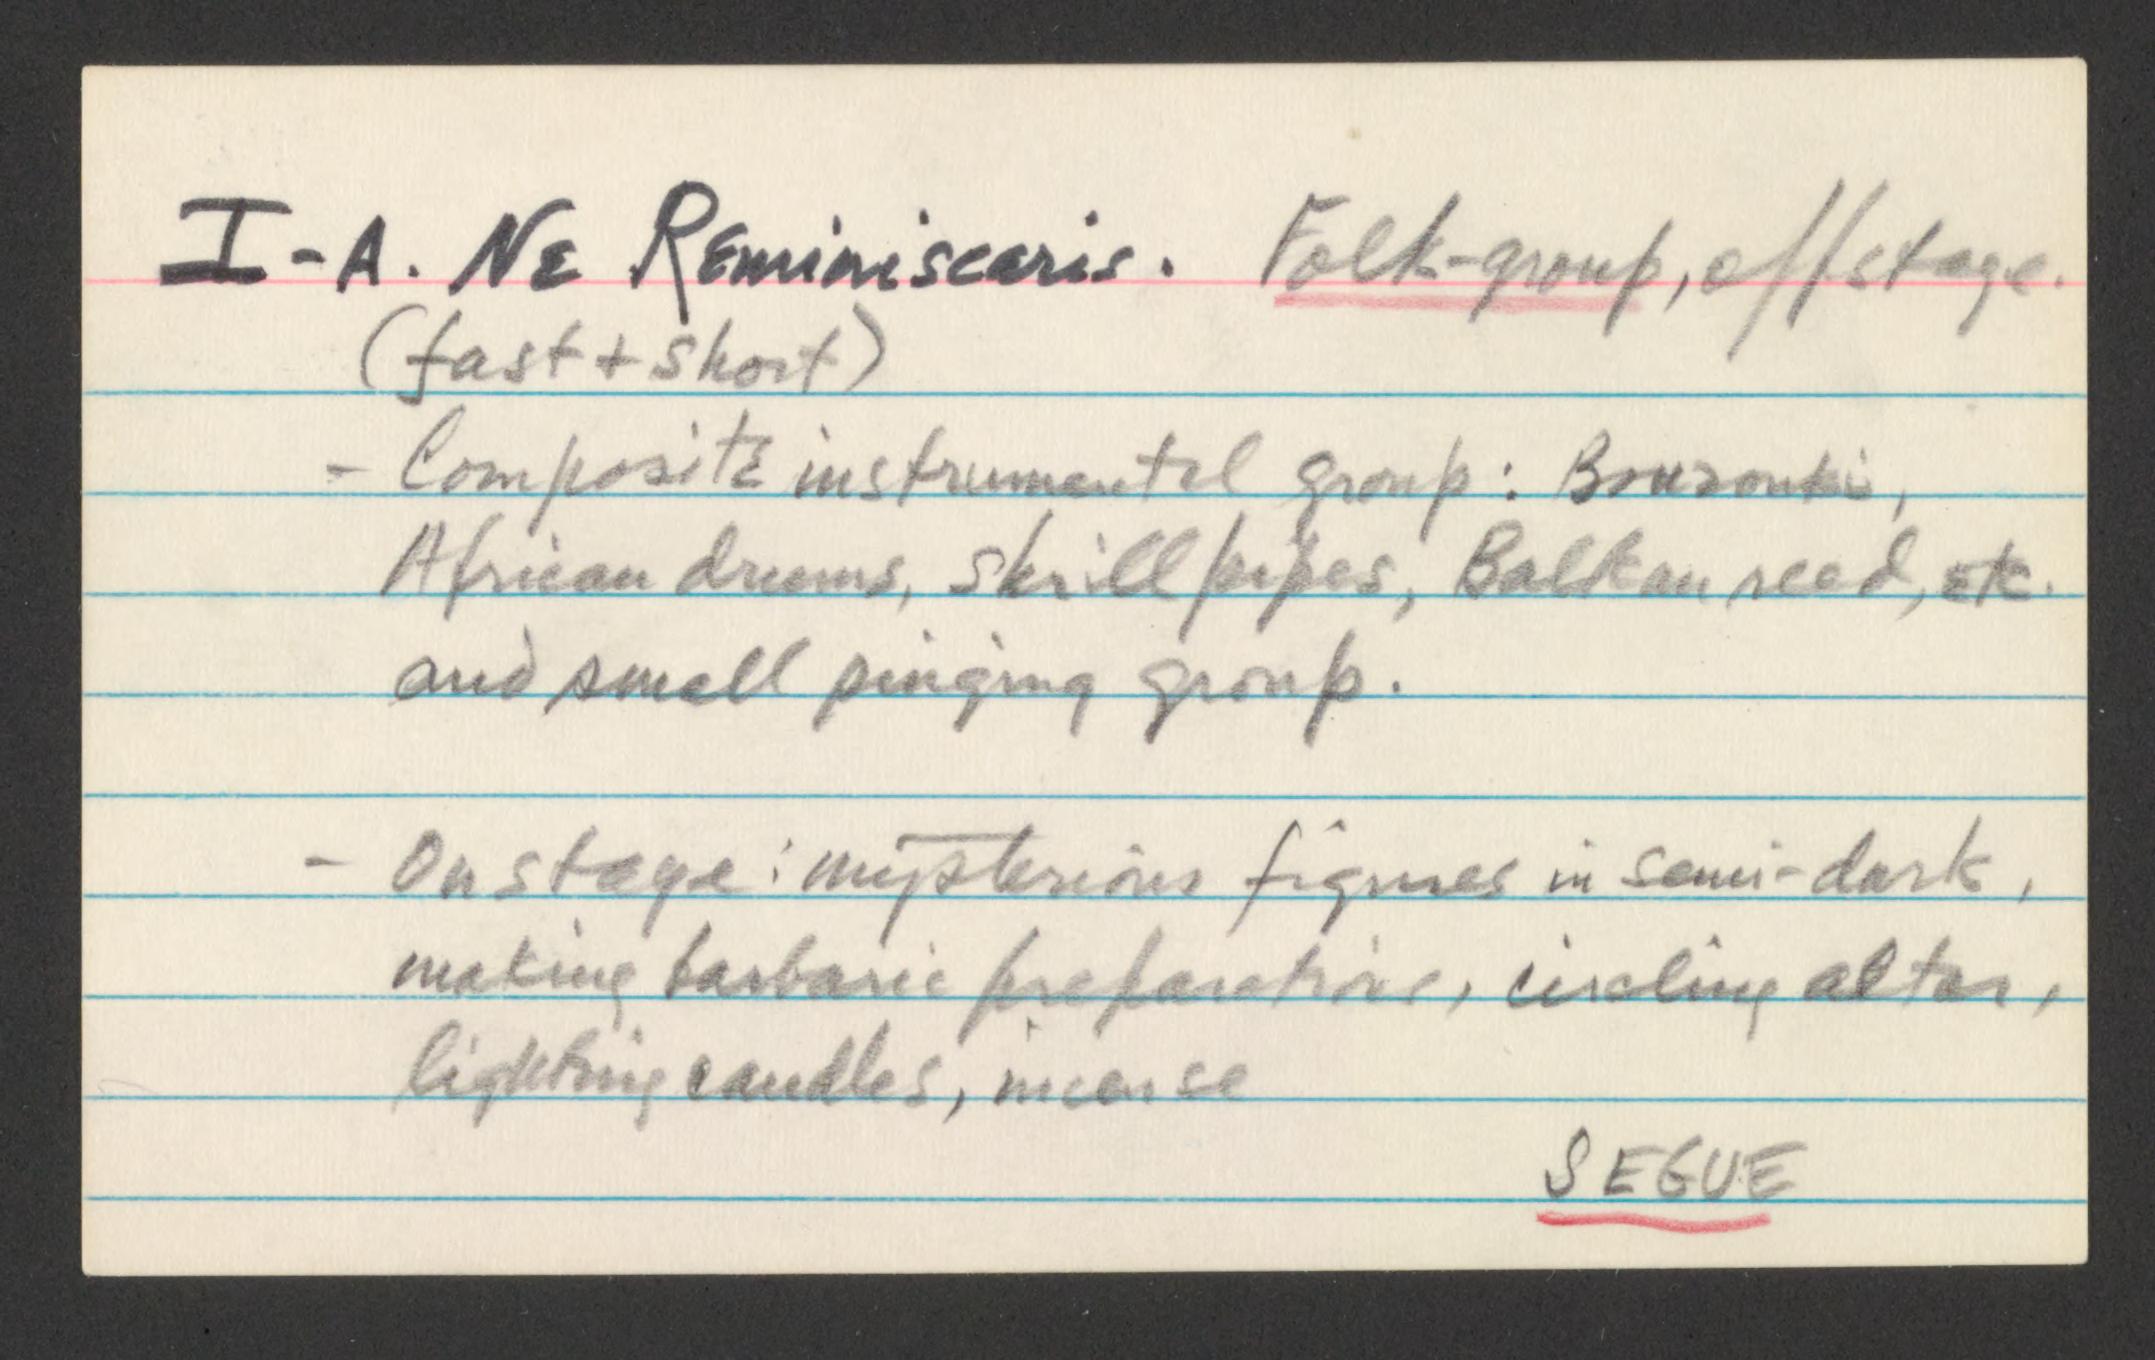 I-A. NE REminiscaris. Folk-group, offstage.
(fast + short)
- Composite instrumental group: Bouzouki,
African drums, shrill pipes, Balkan reed, etc.
and small singing group.
- On stage: mysterious figures in semi-dark,
making barbaric preparations, circling altar,
lighting candles, incense
SEGUE